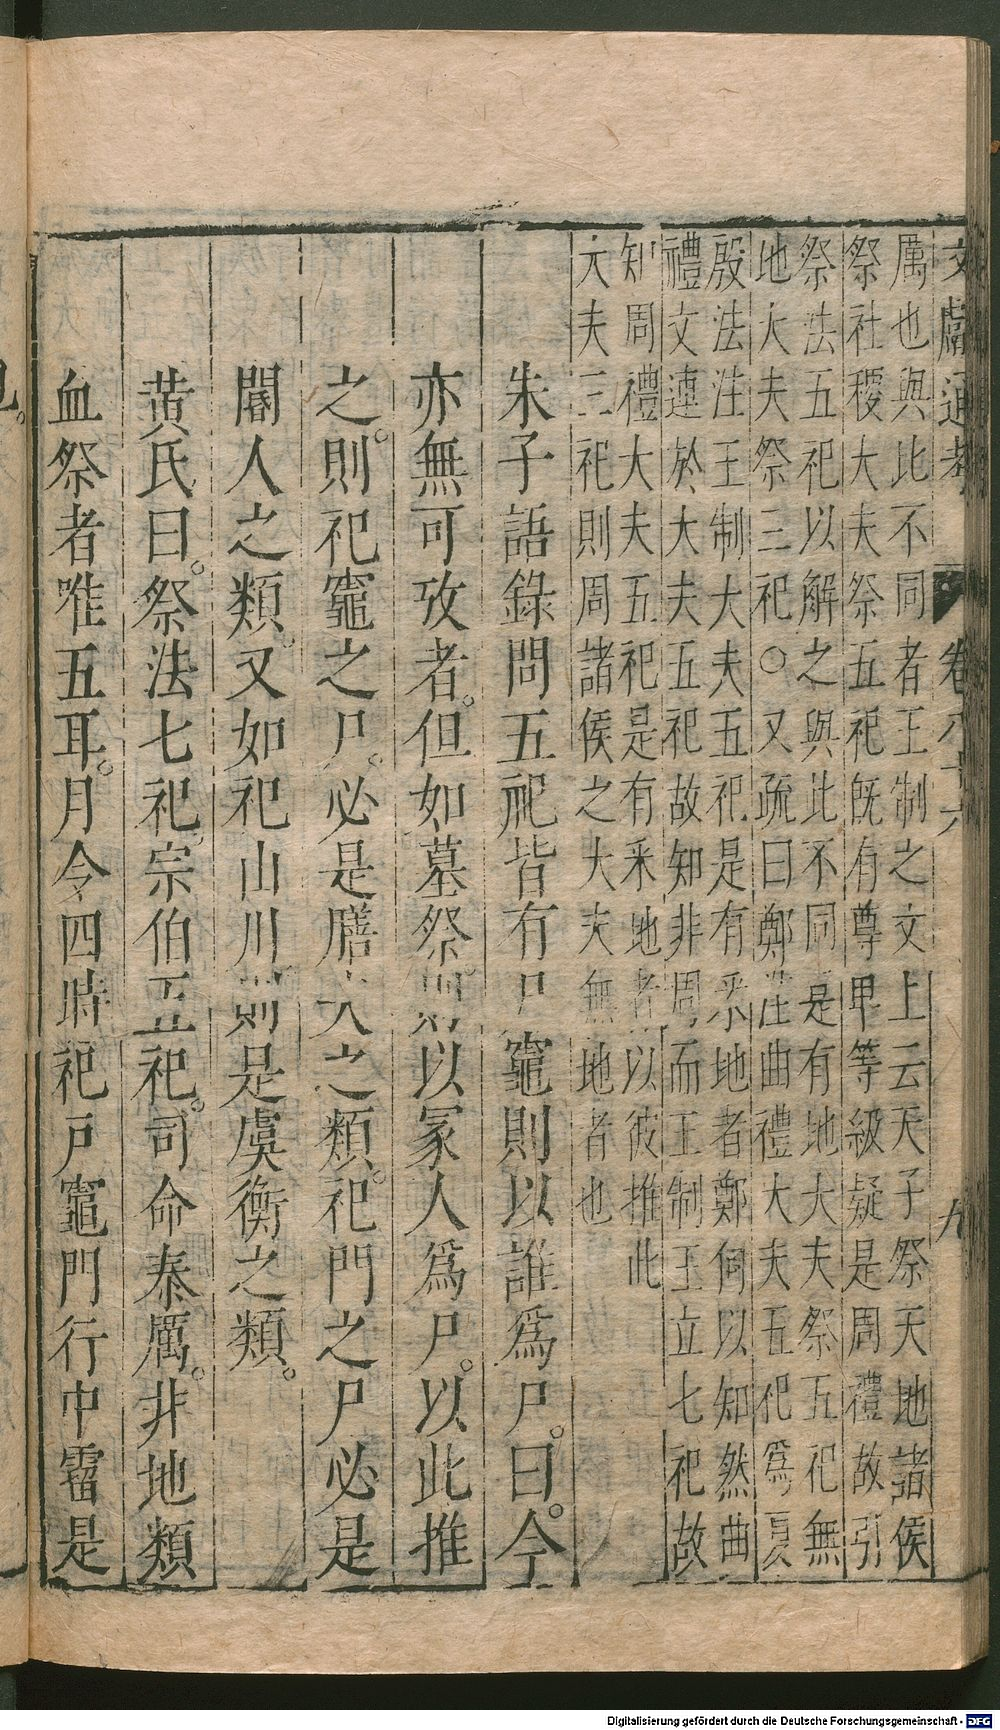 文獻通考 卷八十六 九
厲也與此不同者王制之文上云天子祭天地諸侯
祭社稷大夫祭五祀既有尊卑等級疑是周禮故引
祭法五祀以解之與此不同是有地大夫祭五祀無
地大夫祭三祀○又疏曰鄭注曲禮大夫五祀爲夏
殷法注王制大夫五祀是有釆地者鄭何以知然曲
禮文連於大夫五祀故知非周而王制立七祀故
知周禮大夫五祀是有釆地者以彼推此
大夫三祀則周諸侯之大夫無地者也
朱子語錄問五祀皆有尸竈則以誰爲尸。曰。今
亦無可攷者。但如墓祭則以冢人爲尸。以此推
之。則祀竈之尸。必是膳夫之類。祀門之尸必是
閽人之類。又如祀山川則是虞衡之類。
黄氏曰。祭法七祀。宗伯五祀。司命泰厲。非地類
血祭者唯五耳。月令四時祀戸竈門行中霤是
Digitalisierung gefördert durch die Deutsche Forschungsgemeinschaft - DFG